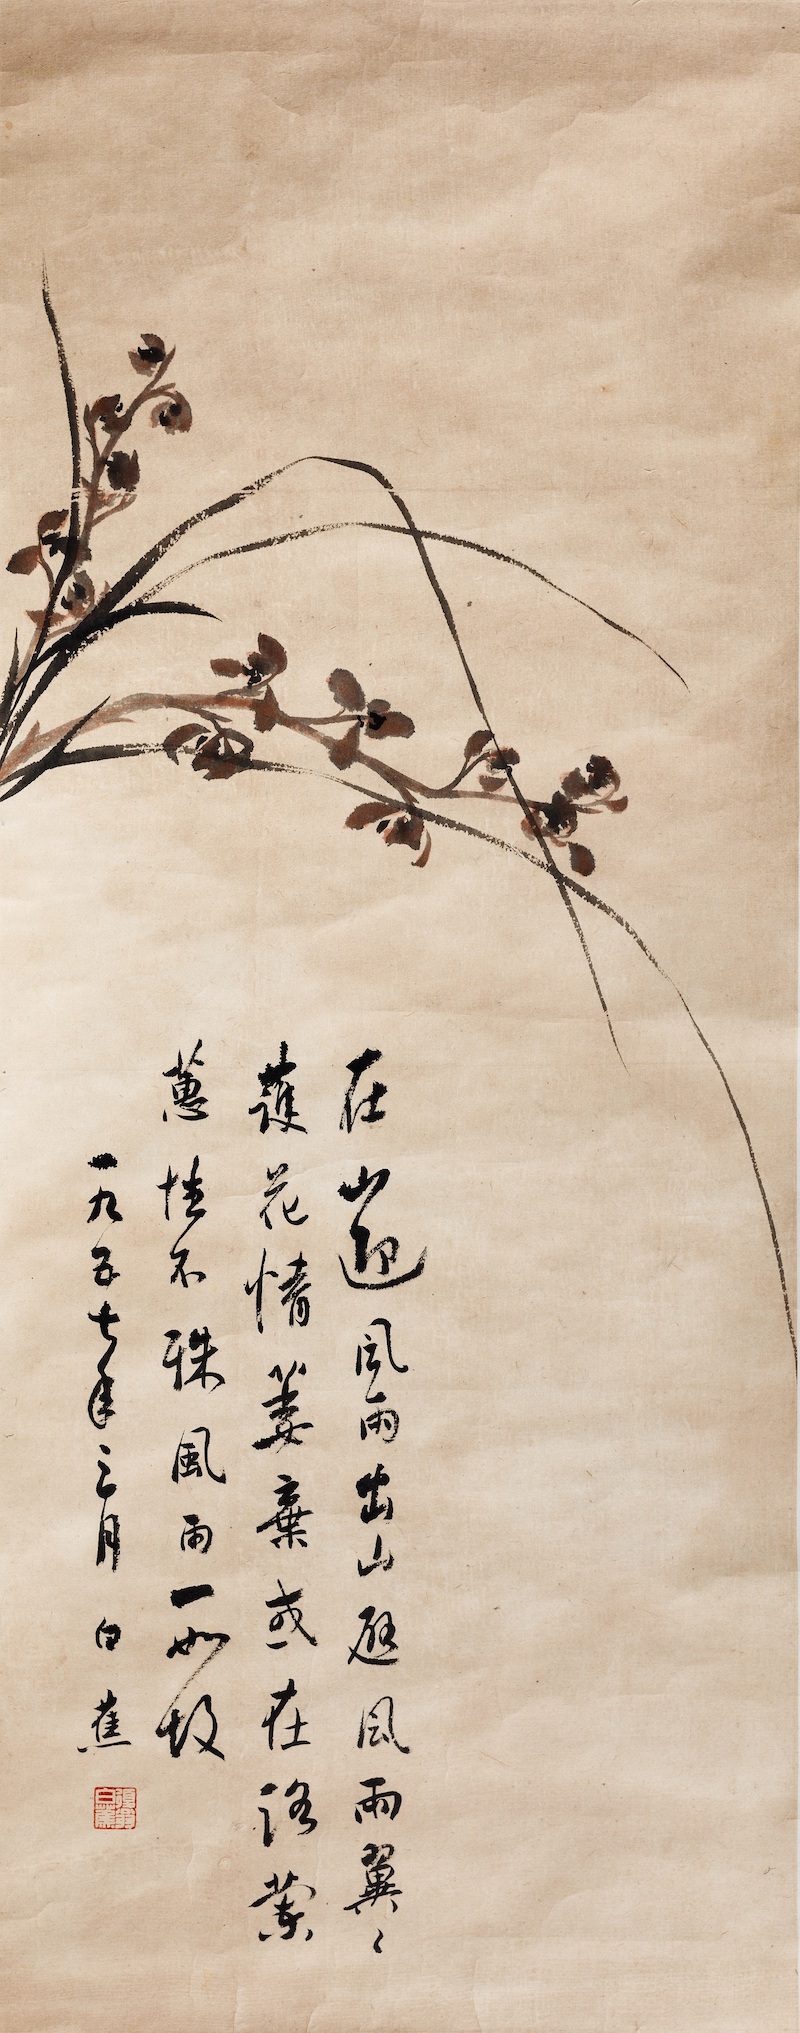 在山迎風雨出山避風雨翼〻
護花情萎棄或在路蘭
蕙性不殊風雨一如故
一九五七年三月 白蕉